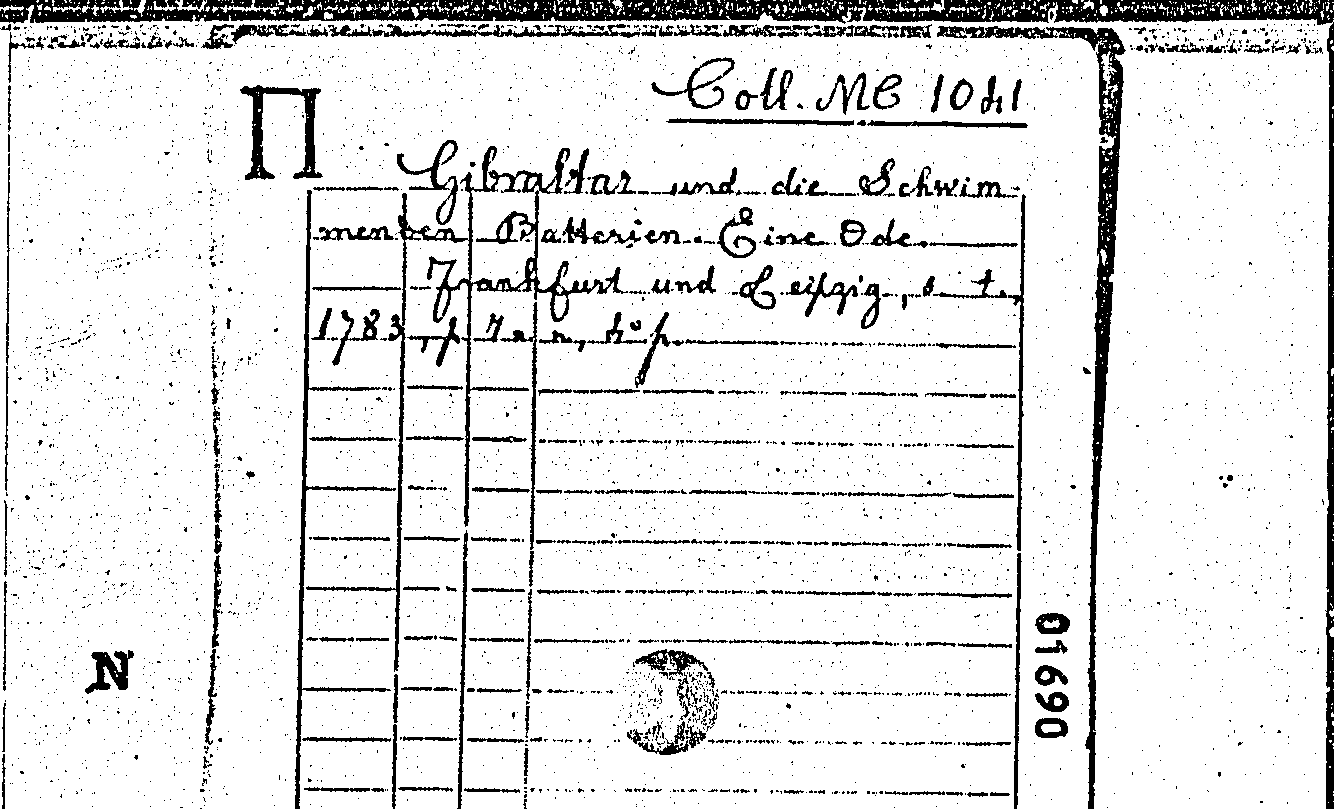 Coll. MC 10
Π
Gibraltar und die Schwim-
menden Batterien. Eine Ode.
Frankfurt und Leipzig, s. t.,
1783, p.
N
01690